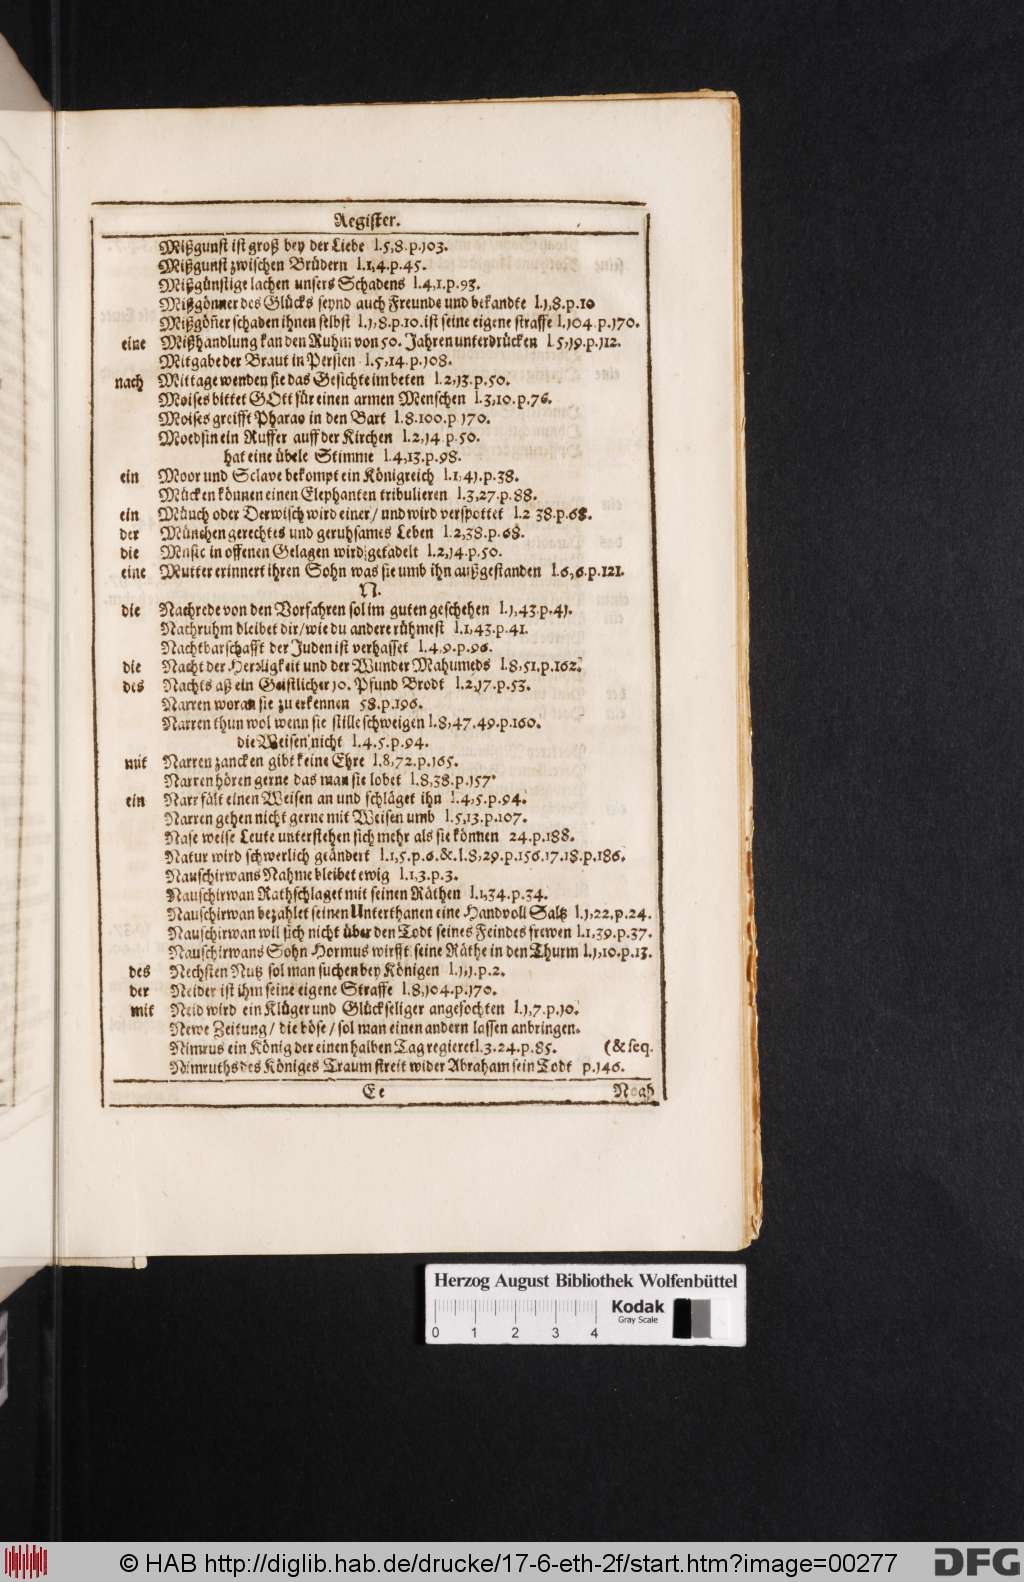 Register.
Mißgunst ist groß bey der Liebe l.5,8.p.103.
Mißgunst zwischen Brüdern l.1,4.p.45.
Mißgünstige lachen unsers Schadens l.4,1.p.93.
Mißgönner des Glücks seynd auch Freunde und bekandte l.1,8.p.10
Mißgöñer schaden ihnen selbst l.1,8.p.10. ist seine eigene straffe l.104.p.170.
eine Mißhandlung kan den Ruhm von 50. Jahren unterdrücken l.5,19.p.112.
Mitgabe der Braut in Persien l.5,14.p.108.
nach Mittage wenden sie das Gesichte im beten l.2,13.p.50.
Moises bittet GOtt für einen armen Menschen l.3,10.p.76.
Moises greifft Pharao in den Bart l.8.100.p.170.
Moedsin ein Ruffer auff der Kirchen l.2,14.p.50.
hat eine übele Stimme l.4,13.p.98.
ein Moor und Sclave bekompt ein Königreich l.1,41.p.38.
Mücken können einen Elephanten tribulieren l.3,27.p.88.
ein Münch oder Derwisch wird einer / und wird verspottet l.2 38.p.68.
der München gerechtes und geruhsames Leben l.2,38.p.68.
die Music in offenen Gelagen wird getadelt l.2,14.p.50.
eine Mutter erinnert ihren Sohn was sie umb ihn außgestanden l.6,6.p.121.
N.
die Nachrede von den Vorfahren sol im guten geschehen l.1,43.p.41.
Nachruhm bleibet dir / wie du andere rühmest l.1,43.p.41.
Nachtbarschafft der Juden ist verhasset l.4.9.p.96.
die Nacht der Herrligkeit und der Wunder Mahumeds l.8,51.p.162.
des Nachts aß ein Geistlicher 10. Pfund Brodt l.2,17.p.53.
Narren woran sie zu erkennen 58.p.196.
Narren thun wol wenn sie stille schweigen l.8,47.49.p.160.
die Weisen nicht l.4.5.p.94.
mit Narren zancken gibt keine Ehre l.8,72.p.165.
Narren hören gerne das man sie lobet l.8,38.p.157
ein Narr fält einen Weisen an und schläget ihn l.4,5.p.94.
Narren gehen nicht gerne mit Weisen umb l.5,13.p.107.
Nase weise Leute unterstehen sich mehr als sie können 24.p.188.
Natur wird schwerlich geändert l.1,5.p.6.&.l.8,29.p.156.17.18.p.186.
Nauschirwans Nahme bleibet ewig l.1,3.p.3.
Nauschirwan Rathschlaget mit seinen Räthen l.1,34.p.34.
Nauschirwan bezahlet seinen Unterthanen eine Handvoll Saltz l.1,22.p.24.
Nauschirwan wil sich nicht über den Todt seines Feindes frewen l.1,39.p.37.
Nauschirwans Sohn Hormus wirfft seine Räthe in den Thurm l.1,10.p.13.
des Nechsten Nutz sol man suchen bey Königen l.1,1.p.2.
der Neider ist ihm seine eigene Straffe l.8,104.p.170.
mit Neid wird ein Klüger und Glückseliger angefochten l.1,7.p.10.
Newe Zeitung / die böse / sol man einen andern lassen anbringen.
Nimrus ein König der einen halben Tag regieret l.3.24.p.85. (& seq.
Nimruths des Königes Traum streit wider Abraham sein Todt p.146.
Ee Noah
Herzog August Bibliothek Wolfenbüttel
0 1 2 3 4
Kodak
Gray Scale
© HAB http://diglib.hab.de/drucke/17-6-eth-2f/start.htm?image=00277
DFG